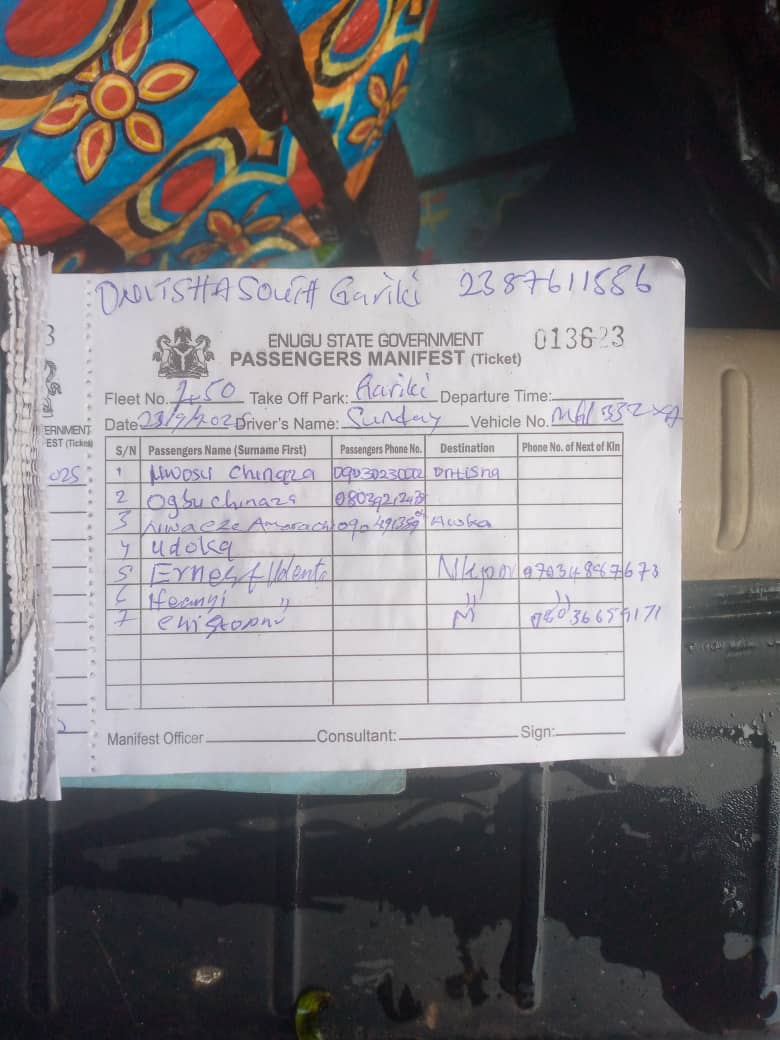 ONITSHA SOUTH Gariki 2387611556
ENUGU STATE GOVERNMENT
PASSENGERS MANIFEST (Ticket)
013623
Fleet No. 7.50 Take Off Park: Gariki Departure Time:
Date 23/9/2025 Driver's Name: Sunday Vehicle No.
S/N Passengers Name (Surname First) Passengers Phone No. Destination Phone No. of Next of Kin
1 Nwosu Chinaza
2 Ogbu chinaza
3 Amarachi Awka
4 Udoka
5 Ernest Nkpor 07034887673
6 Ifeanyi " " "
7 M 08036659171
Manifest Officer Consultant: Sign:
3
ERNMENT
EST (Ticket)
025